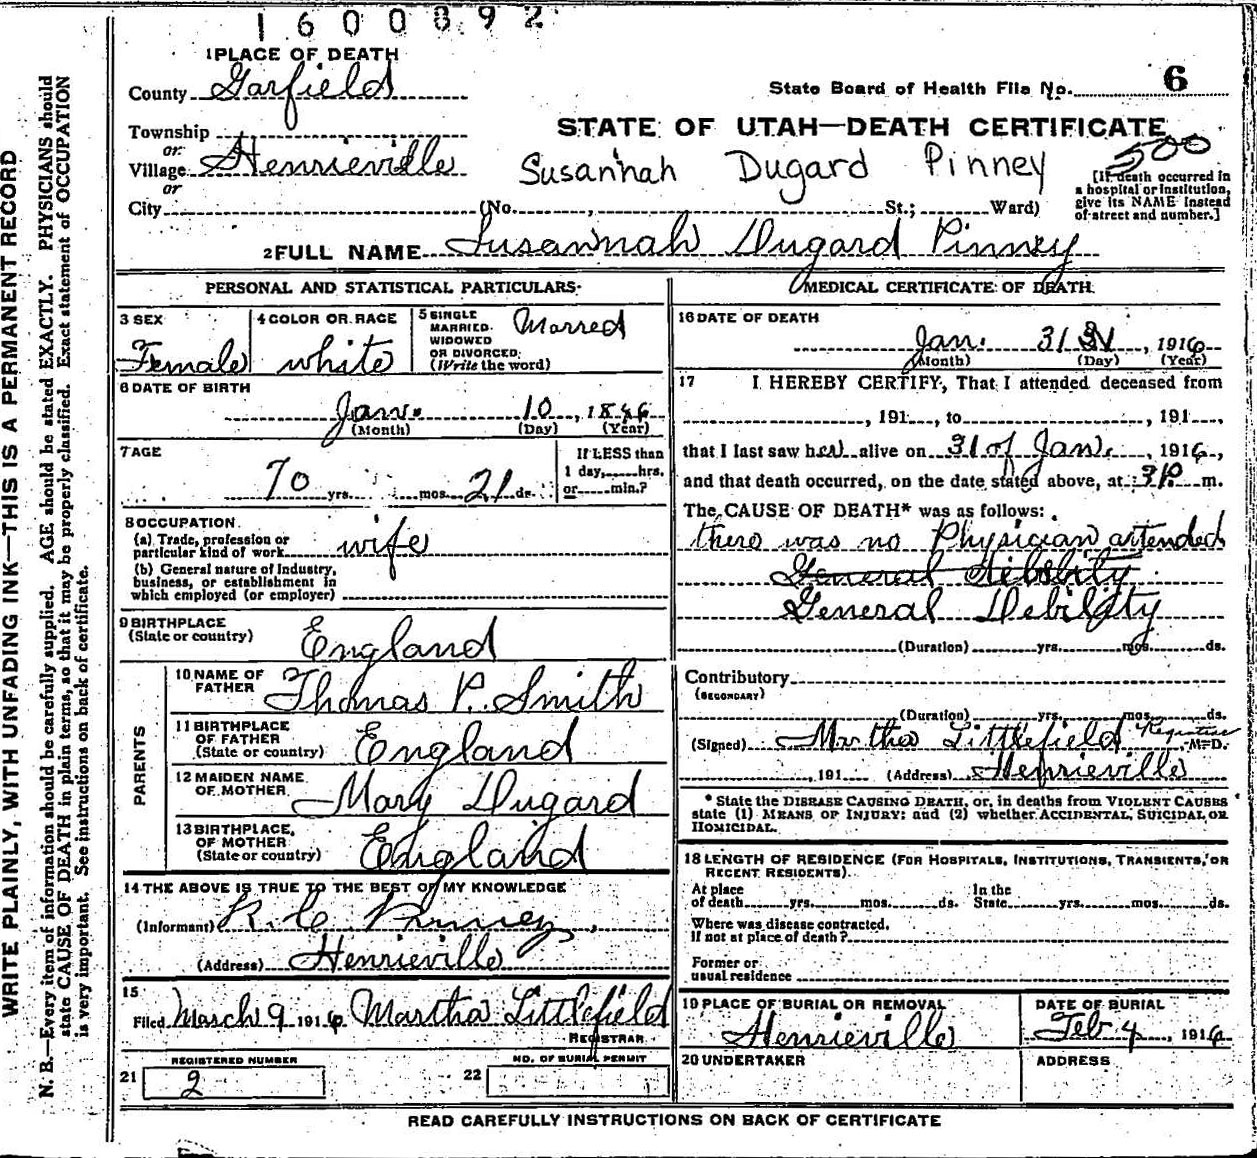 1600892
1 PLACE OF DEATH
County Garfield
State Board of Health File No. 6
Township
or
Village Henrieville
or
City (No. , St.; Ward)
STATE OF UTAH—DEATH CERTIFICATE
500
Susannah Dugard Pinney
[If death occurred in
a hospital or institution,
give its NAME instead
of street and number.]
2 FULL NAME Susannah Dugard Pinney
PERSONAL AND STATISTICAL PARTICULARS
3 SEX
Female
4 COLOR OR RACE
white
5 SINGLE
MARRIED
WIDOWED
OR DIVORCED
(Write the word)
Marred
6 DATE OF BIRTH
Jan. 10, 1846
(Month) (Day) (Year)
7 AGE
70 yrs. mos. 21 ds.
If LESS than
1 day, hrs.
or min.?
8 OCCUPATION
(a) Trade, profession or
particular kind of work wife
(b) General nature of Industry,
business, or establishment in
which employed (or employer)
9 BIRTHPLACE
(State or country) England
PARENTS
10 NAME OF
FATHER Thomas P. Smith
11 BIRTHPLACE
OF FATHER
(State or country) England
12 MAIDEN NAME
OF MOTHER Mary Dugard
13 BIRTHPLACE
OF MOTHER
(State or country) England
14 THE ABOVE IS TRUE TO THE BEST OF MY KNOWLEDGE
(Informant) R. C. Pinney
(Address) Henrieville
15
Filed March 9 1916 Martha Littlefield
REGISTRAR
REGISTERED NUMBER
21 2
NO. OF BURIAL PERMIT
22
MEDICAL CERTIFICATE OF DEATH
16 DATE OF DEATH
Jan. 31 31, 1916
(Month) (Day) (Year)
17 I HEREBY CERTIFY, That I attended deceased from
, 191 , to , 191 ,
that I last saw her alive on 31 of Jan. , 1916,
and that death occurred, on the date stated above, at 9 P. m.
The CAUSE OF DEATH* was as follows:
there was no Physician attended
General Debility
General Debility
(Duration) yrs. mos. ds.
Contributory
(SECONDARY)
(Duration) yrs. mos. ds.
(Signed) Martha Littlefield Registrar M.D.
, 191 (Address) Henrieville
* State the DISEASE CAUSING DEATH, or, in deaths from VIOLENT CAUSES
state (1) MEANS OF INJURY; and (2) whether ACCIDENTAL, SUICIDAL OR
HOMICIDAL.
18 LENGTH OF RESIDENCE (FOR HOSPITALS, INSTITUTIONS, TRANSIENTS, OR
RECENT RESIDENTS).
At place In the
of death yrs. mos. ds. State yrs. mos. ds.
Where was disease contracted,
if not at place of death?
Former or
usual residence
19 PLACE OF BURIAL OR REMOVAL
Henrieville
DATE OF BURIAL
Feb 4, 1916
20 UNDERTAKER
ADDRESS
READ CAREFULLY INSTRUCTIONS ON BACK OF CERTIFICATE
WRITE PLAINLY, WITH UNFADING INK—THIS IS A PERMANENT RECORD
N. B.—Every item of information should be carefully supplied. AGE should be stated EXACTLY. PHYSICIANS should
state CAUSE OF DEATH in plain terms, so that it may be properly classified. Exact statement of OCCUPATION
is very important. See instructions on back of certificate.